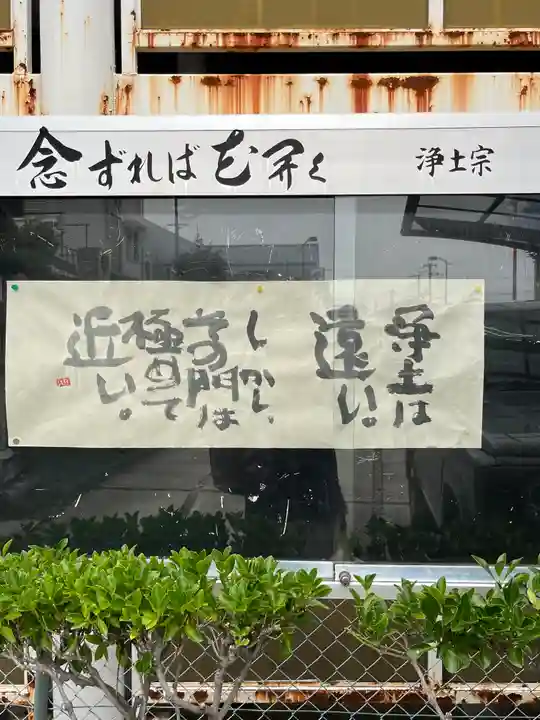 念ずれば花開く
浄土宗
浄土は
遠い。
しかし、
その門は
極めて
近い。